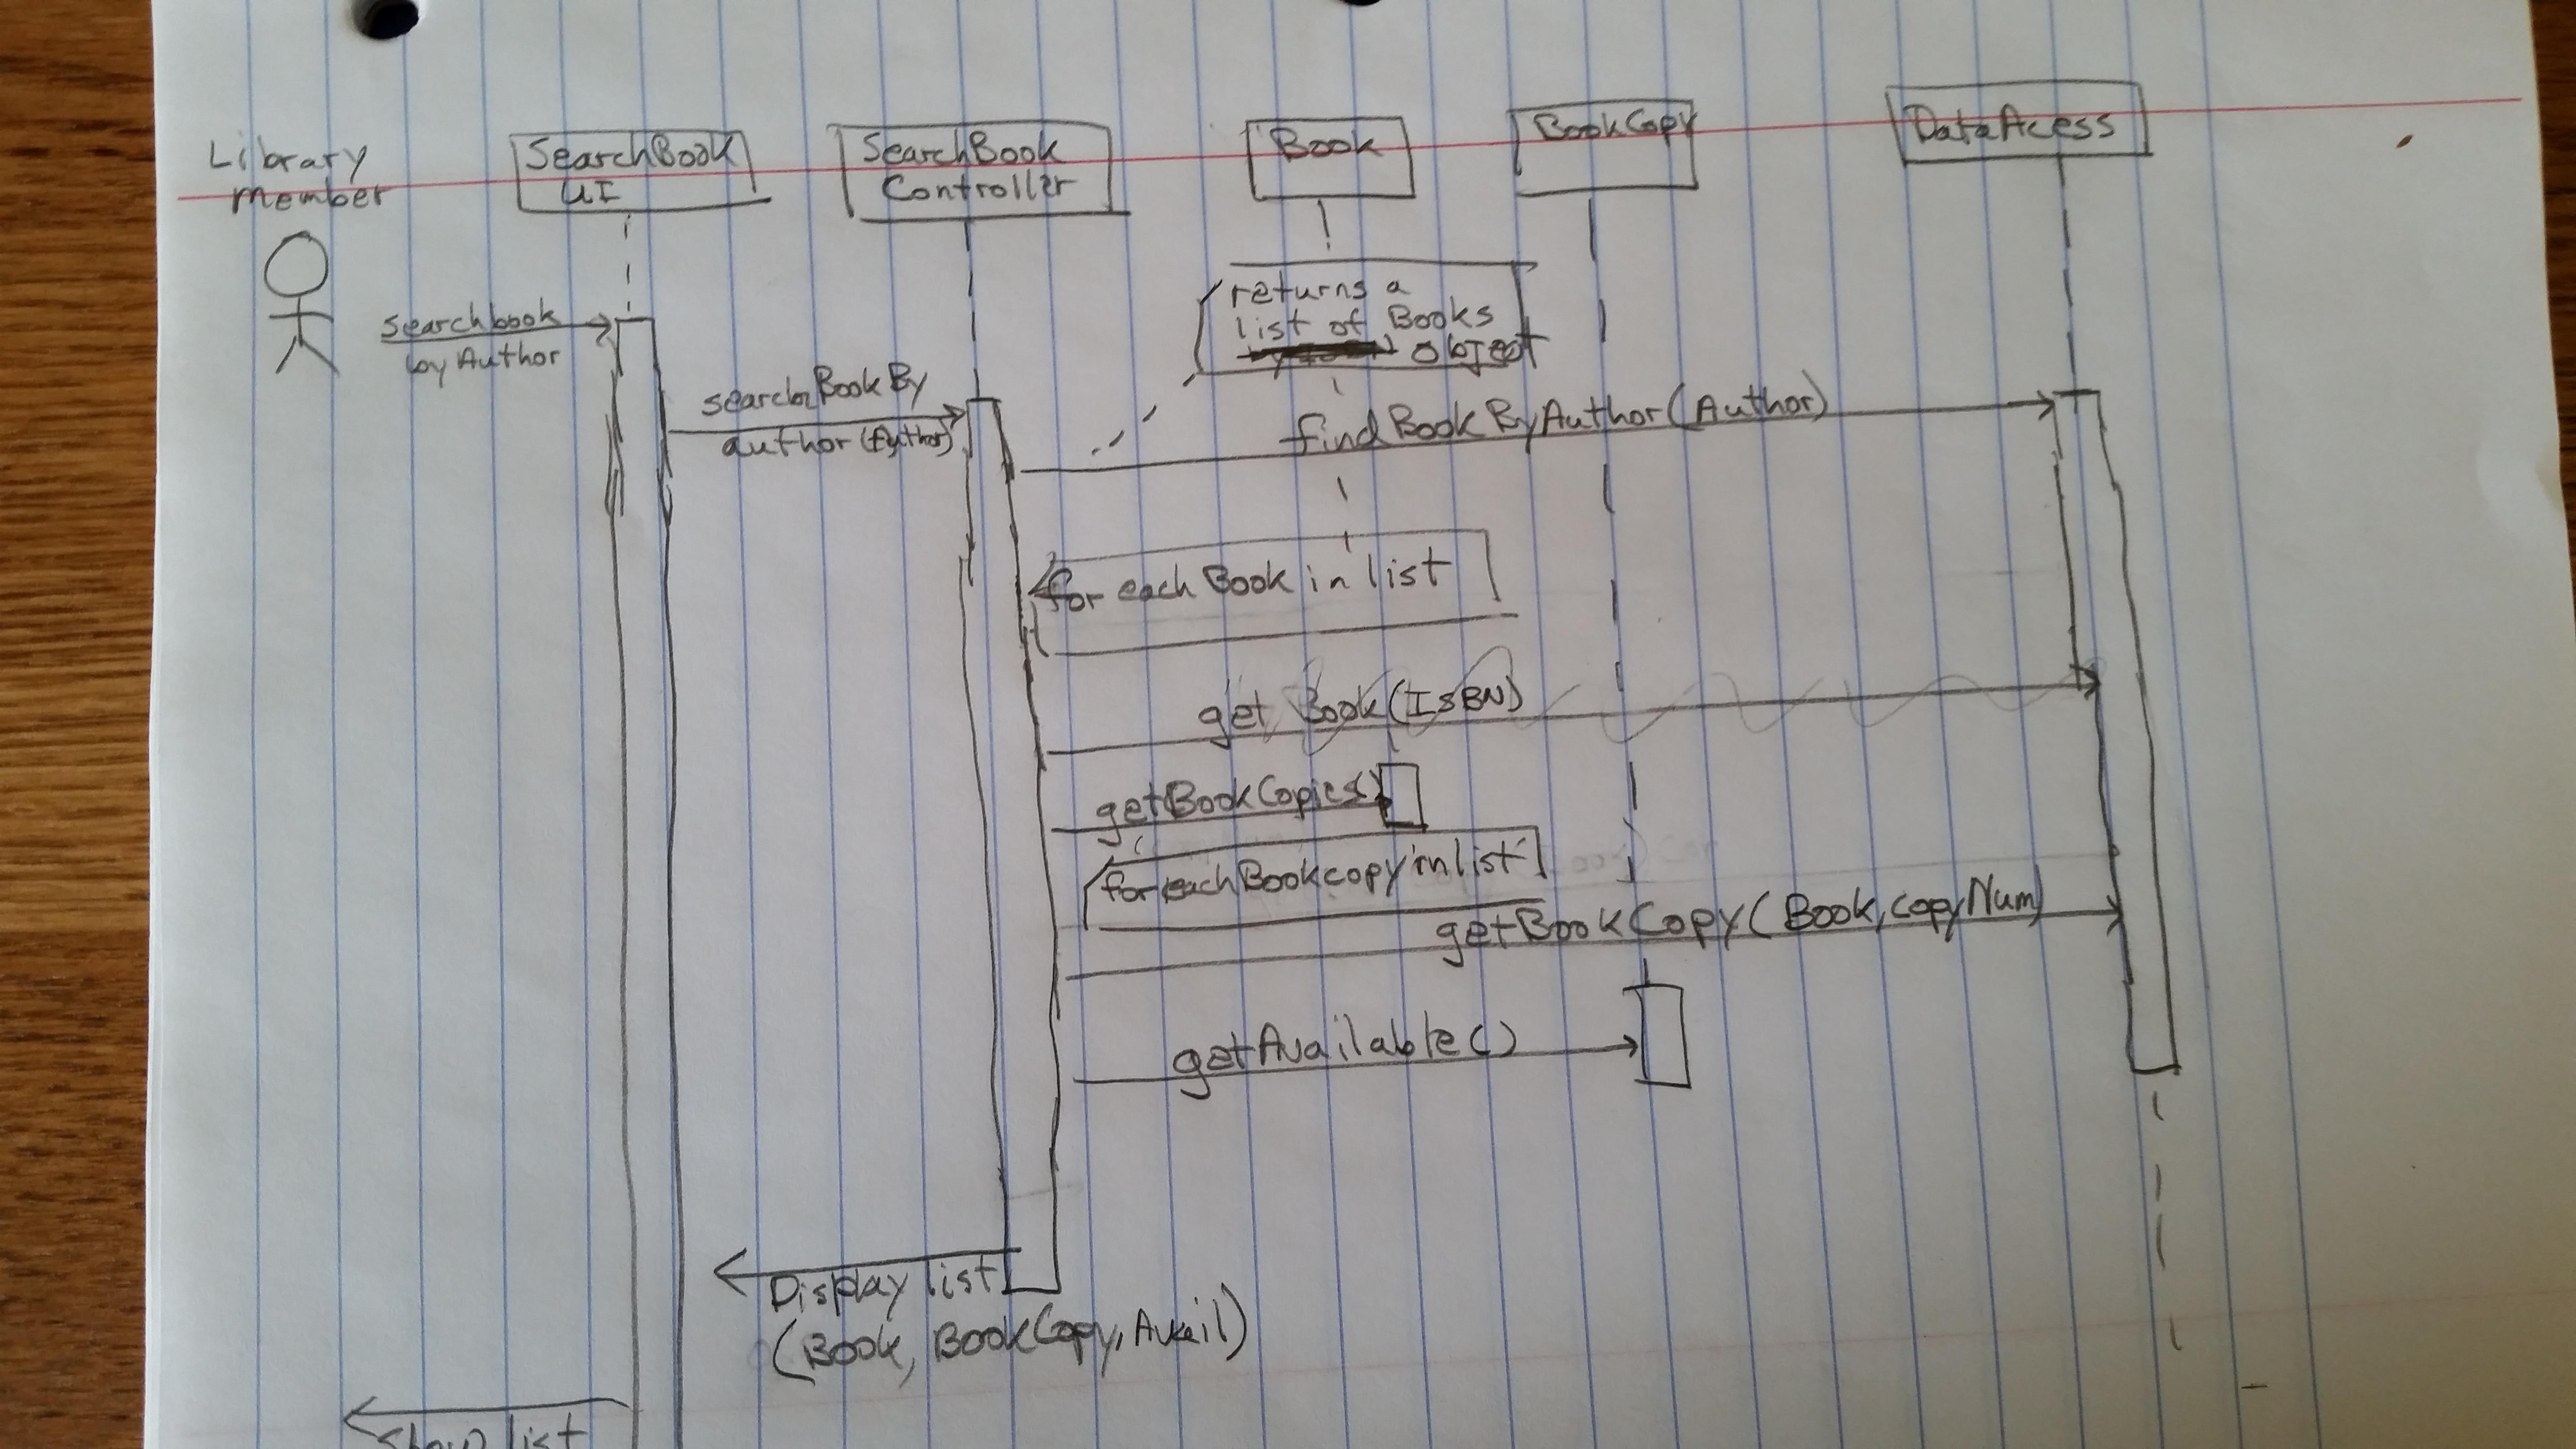 Library
member
SearchBook
UI
SearchBook
Controller
Book
BookCopy
DataAcess
returns a
list of Books
Object
searchbook
by Author
searchBook By
author (Author)
findBookByAuthor(Author)
for each Book in list
get Book(ISBN)
getBookCopies()
for each Bookcopy in list
getBookCopy(Book, copyNum)
getAvailable()
Display list
(Book, BookCopy, Avail)
Show list